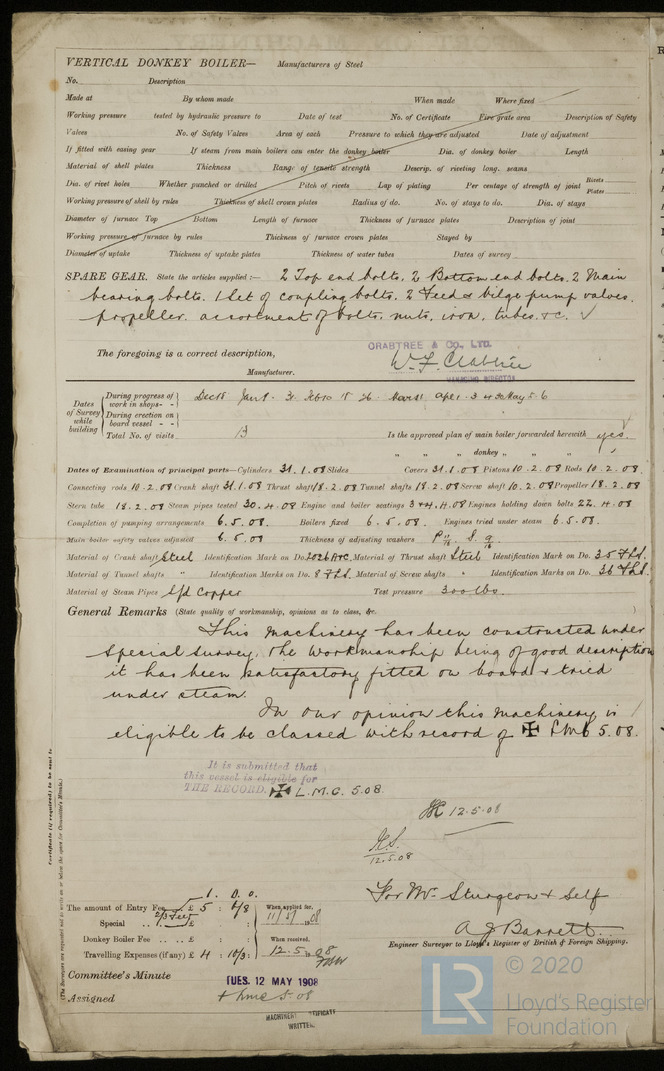 VERTICAL DONKEY BOILER— Manufacturers of Steel
No. Description
Made at By whom made When made Where fixed
Working pressure tested by hydraulic pressure to Date of test No. of Certificate Fire grate area Description of Safety
Valves No. of Safety Valves Area of each Pressure to which they are adjusted Date of adjustment
If fitted with easing gear If steam from main boilers can enter the donkey boiler Dia. of donkey boiler Length
Material of shell plates Thickness Range of tensile strength Descrip. of riveting long. seams
Dia. of rivet holes Whether punched or drilled Pitch of rivets Lap of plating Per centage of strength of joint Rivets Plates
Working pressure of shell by rules Thickness of shell crown plates Radius of do. No. of stays to do. Dia. of stays
Diameter of furnace Top Bottom Length of furnace Thickness of furnace plates Description of joint
Working pressure of furnace by rules Thickness of furnace crown plates Stayed by
Diameter of uptake Thickness of uptake plates Thickness of water tubes Dates of survey
SPARE GEAR. State the articles supplied:— 2 Top end bolts, 2 Bottom end bolts, 2 Main
bearing bolts. 1 Set of coupling bolts. 2 Feed & bilge pump valves.
propeller. assortment of bolts, nuts, iron, tubes. &c. ✓
CRABTREE & CO., LTD.
The foregoing is a correct description,
W. F. Crabtree
Manufacturer. MANAGING DIRECTOR
Dates of Survey while building
During progress of work in shops- - Dec 18 Jan 9 31 Feb 10 18 26 Apl 1 3 4 30 May 5 6
During erection on board vessel - -
Total No. of visits 13 Is the approved plan of main boiler forwarded herewith yes.
" " donkey " " "
Dates of Examination of principal parts—Cylinders 31.1.08 Slides Covers 31.1.08 Pistons 10.2.08 Rods 10.2.08
Connecting rods 10.2.08 Crank shaft 31.1.08 Thrust shaft 18.2.08 Tunnel shafts 18.2.08 Screw shaft 10.2.08 Propeller 18.2.08
Stern tube 18.2.08 Steam pipes tested 30.4.08 Engine and boiler seatings 3&4.4.08 Engines holding down bolts 22.4.08
Completion of pumping arrangements 6.5.08. Boilers fixed 6.5.08. Engines tried under steam 6.5.08.
Main boiler safety valves adjusted 6.5.08 Thickness of adjusting washers
Material of Crank shaft Steel Identification Mark on Do. Material of Thrust shaft Steel Identification Mark on Do.
Material of Tunnel shafts " Identification Marks on Do. Material of Screw shafts " Identification Marks on Do.
Material of Steam Pipes S/d Copper Test pressure 300 lbs.
General Remarks (State quality of workmanship, opinions as to class, &c.
This Machinery has been constructed under
Special survey, the workmanship being of good description
it has been satisfactory fitted on board & tried
under steam.
In our opinion this machinery is
eligible to be classed with record of ✠ LMC 5.08.
It is submitted that
this vessel is eligible for
THE RECORD. ✠ L.M.C. 5.08.
12.5.08
12.5.08
Certificate (if required) to be sent to
(The Surveyors are requested not to write on or below the space for Committee's Minute.)
For Mr. Sturgeon & Self
A J Barrett
Engineer Surveyor to Lloyd's Register of British & Foreign Shipping.
The amount of Entry Fee £ 5 : 6/8 When applied for, 11/5/08
Special £
Donkey Boiler Fee £ When received,
Travelling Expenses (if any) £ 4 : 10/3 12.5.08
Committee's Minute TUES. 12 MAY 1908
Assigned + Lmc 5.08
MACHINERY CERTIFICATE
WRITTEN.
LR © 2020
Lloyd's Register
Foundation